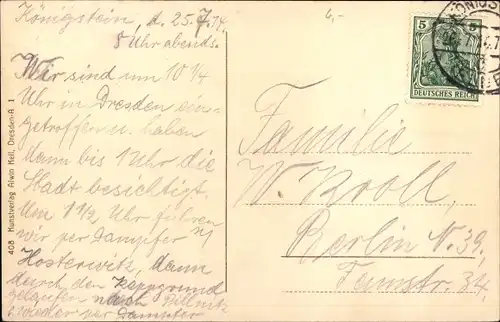 Königstein, d. 25.7.14.
8 Uhr abends.
Wir sind um 10 1/4
Uhr in Dresden ein-
getroffen u. haben
dann bis 1 Uhr die
Stadt besichtigt.
Um 1 1/2 Uhr fuhren
wir per Dampfer n/
Hosterwitz, dann
durch den Keppgrund
gelaufen nach Pillnitz
Wieder per Dampfer
6,-
5
DEUTSCHES REICH
Familie
W. Kroll,
Berlin N. 39.
Tegelerstr. 34.
408 Kunstverlag Alwin Keil, Dresden-A 1